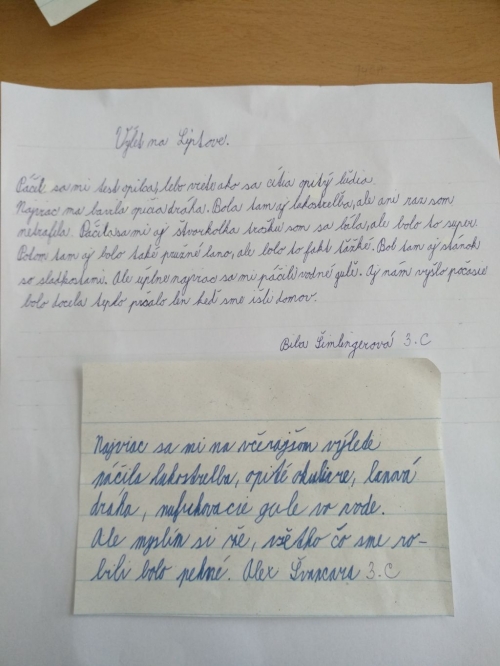 Výlet na Liptove.
Páčil sa mi test opilca, lebo viete ako sa cítia opitý lúdia.
Najviac ma bavila opičia dráha. Bola tam aj lukostrelba, ale ani raz som
netrafela. Páčila sa mi aj štvorkolka trochu som sa bála, ale bolo to super.
Potom tam aj bolo také pružné lano, ale bolo to fakt ťažké. Bol tam aj stánok
so sladkosťami. Ale úplne najviac sa mi páčili vodné gule. Aj nám vyšlo počasie
bolo docela teplo pršalo len keď sme išli domov.
Bila Šimlingerová 3.C
Najviac sa mi na včerajšom výlede
páčila lukostrelba, opité okuliare, lanová
dráha, nafukovacie gule vo vode.
Ale myslím si že, všetko čo sme ro-
bili bolo pekné. Alex Švancara 3.C